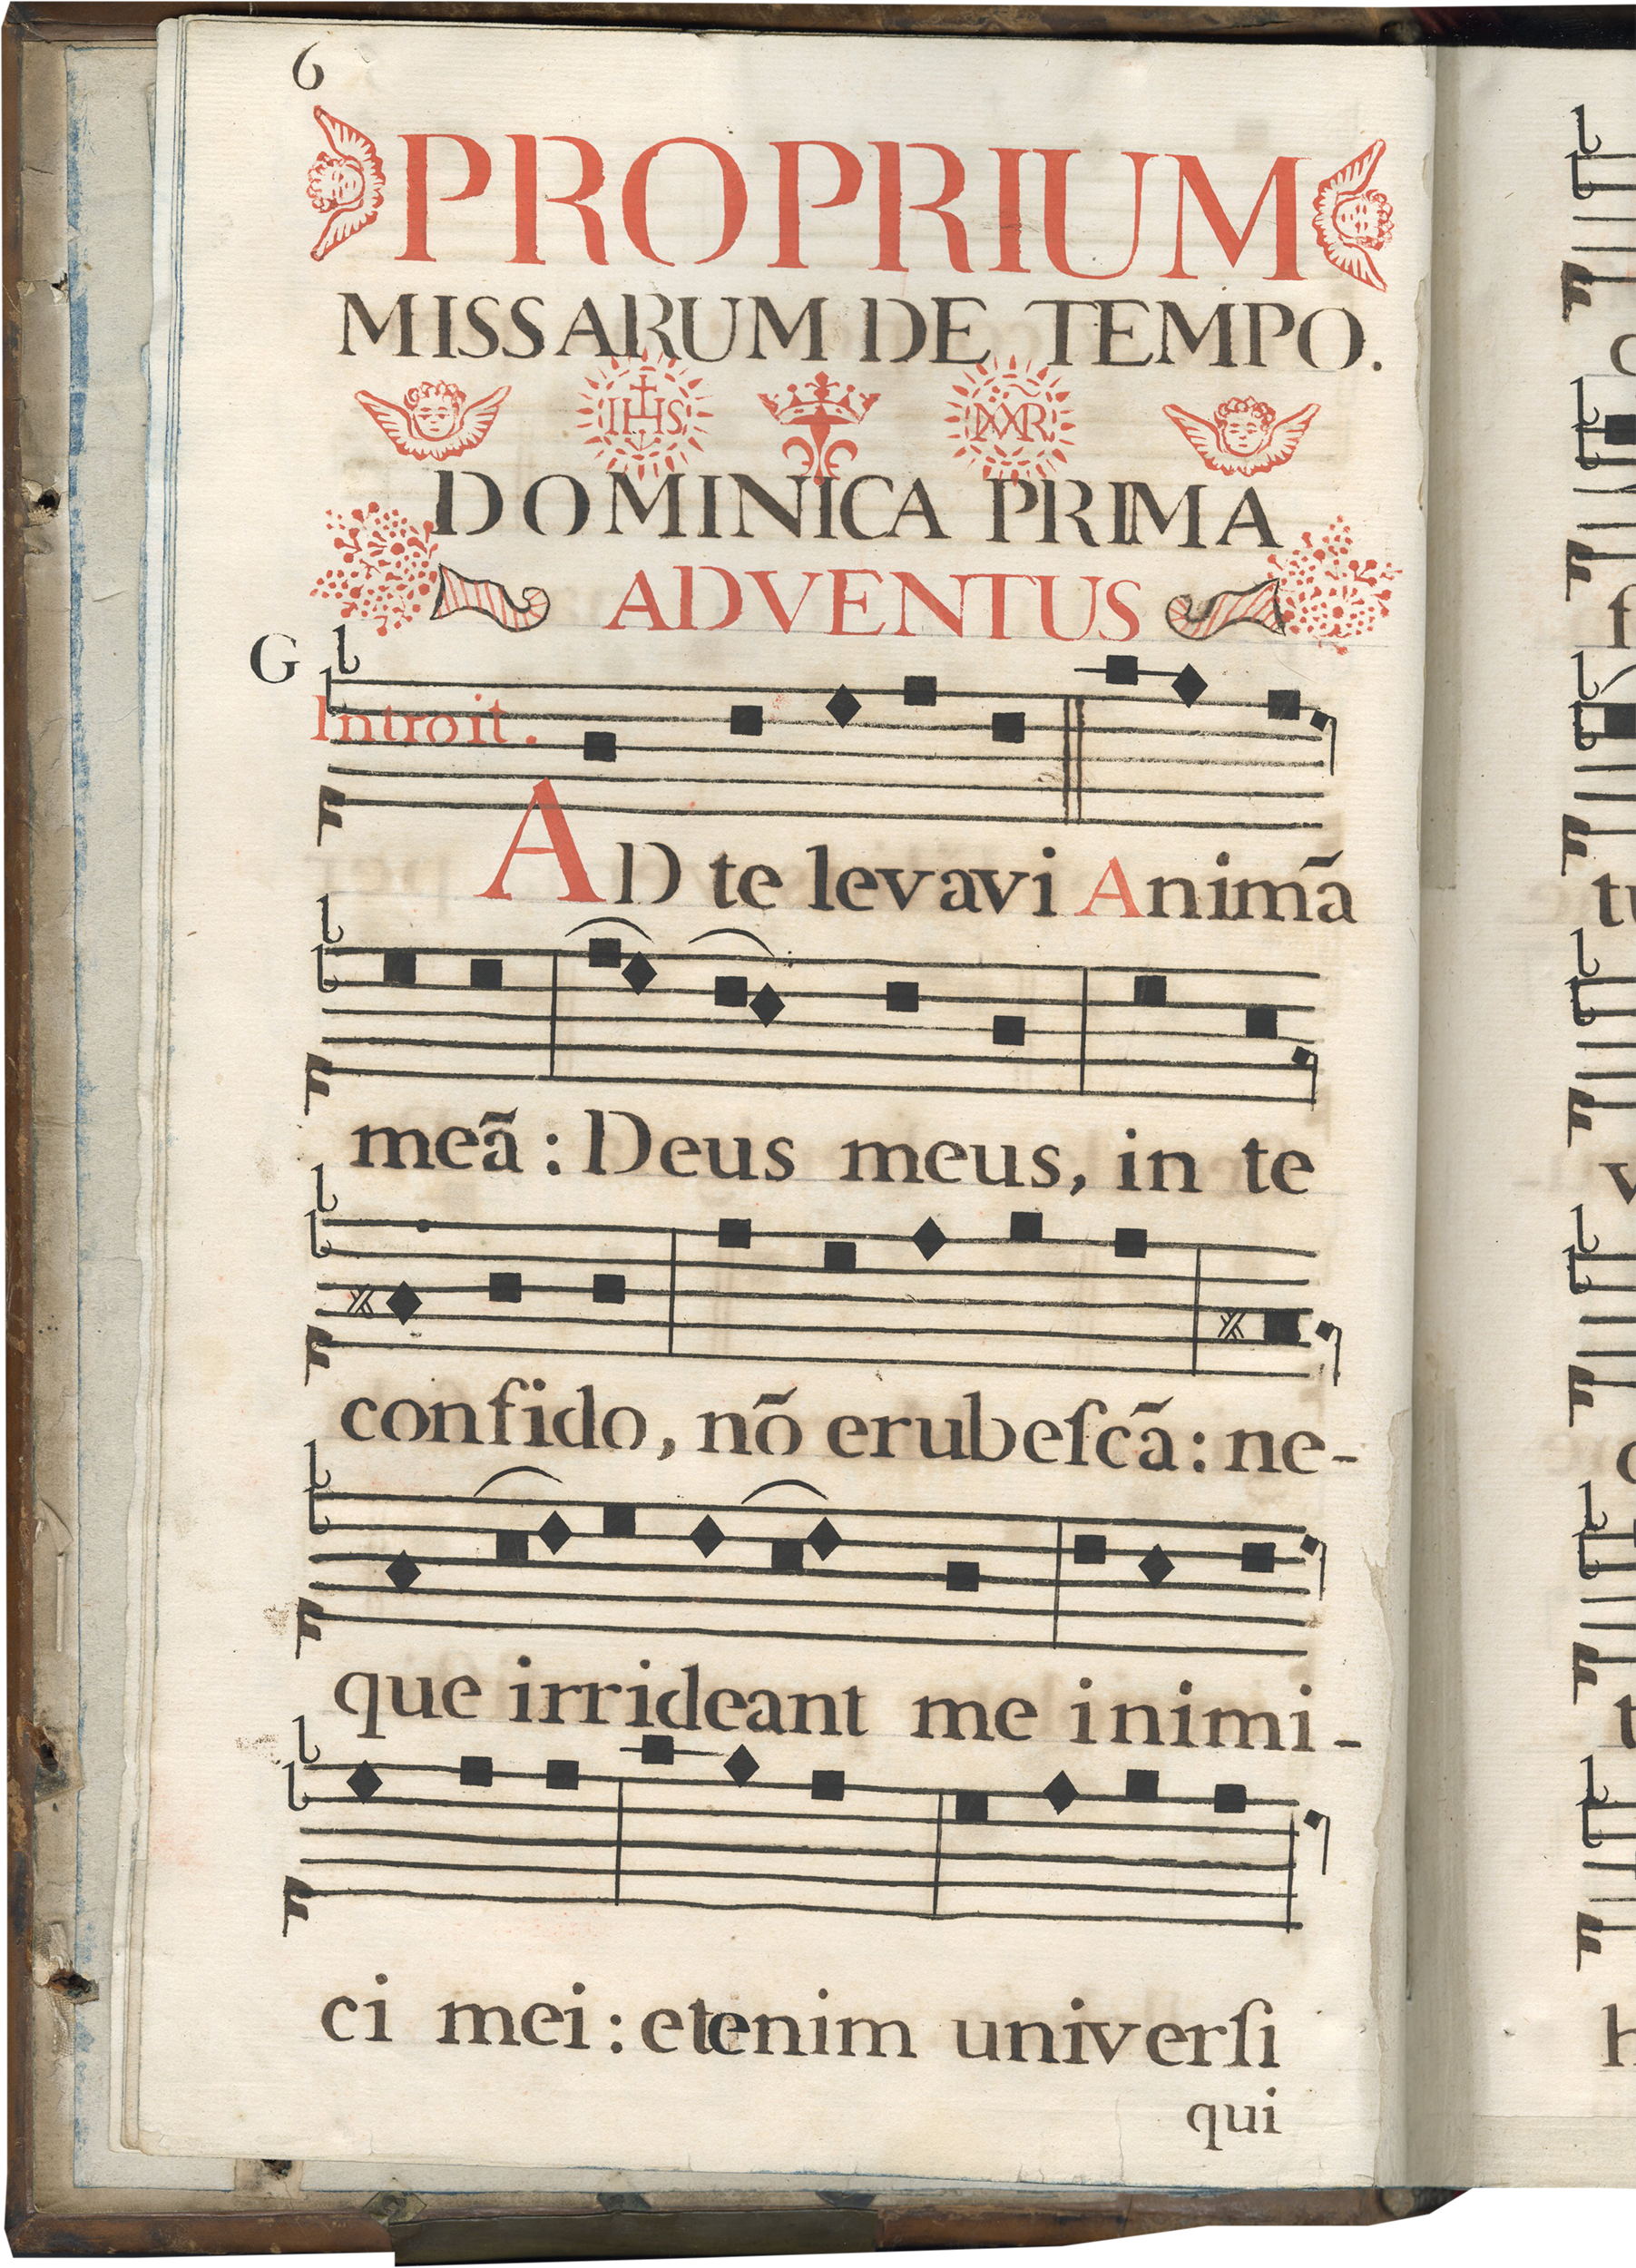 6
PROPRIUM
MISSARUM DE TEMPO.
IHS MAR
DOMINICA PRIMA
ADVENTUS
G
Introit.
AD te levavi Animã
meã: Deus meus, in te
confido, nõ erubeſcã: ne-
que irrideant me inimi-
ci mei: etenim univerſi
qui